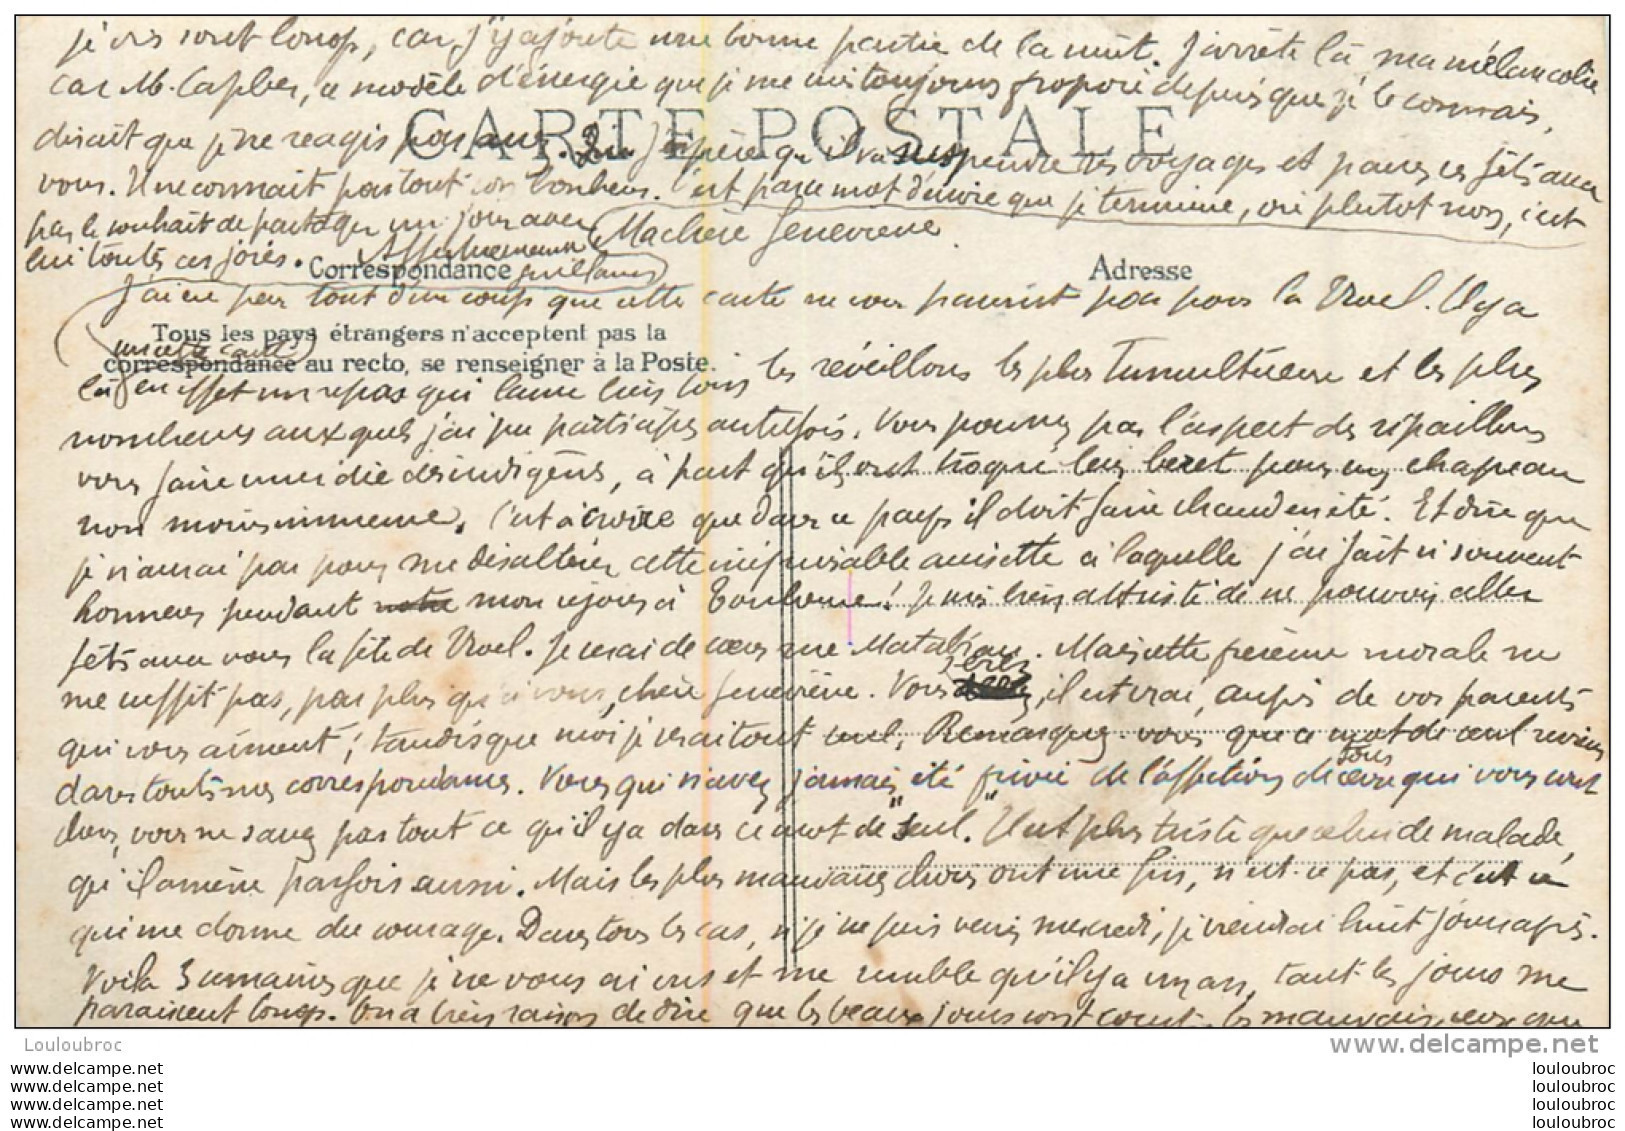 je vis sont longs, car j'y ajoute une bonne partie de la nuit. J'arrête là ma mélancolie
car M. , ce modèle d'énergie que je me suis toujours proposé depuis que je le connais,
dirait que je ne réagis pas assez. J'espère qu'il va suspendre ses voyages et passer ces fêtes avec
vous. Il ne connait pas tout son bonheur. C'est par ce mot d'envie que je termine, oui plutôt non, c'est
par le souhait de partager un jour avec Ma chère Geneviève.
lui toutes ces joies. Affectueusement
CARTE POSTALE
Correspondance
Adresse
J'ai eu peur tout d'un coup que cette carte ne vous parvint pas pour la Noël. Il y a
Tous les pays étrangers n'acceptent pas la
correspondance au recto, se renseigner à la Poste.
sur cette carte
là en effet un repas qui laisse loin les réveillons les plus tumultueux et les plus
nombreux auxquels j'ai pu participer autrefois. Vous pouvez par l'aspect des ripailleurs
vous faire une idée des indigènes, à part qu'ils ont troqué leur beret pour un chapeau
non moins immense. C'est à croire que dans ce pays il doit faire chaud en été. Et dire que
je n'aurai pas pour me désaltérer cette inépuisable anisette à laquelle j'ai fait si souvent
honneur pendant mon séjour à Toulouse! Je suis bien attristé de ne pouvoir aller
fêter avec vous la fête de Noël. Je serai de coeur rue Matabiau. Mais cette présence morale ne
me suffit pas, pas plus qu'à vous, chère Geneviève. Vous serez, il est vrai, auprès de vos parents
qui vous aiment; tandis que moi je serai tout seul. Remarquez-vous que ce mot de seul revient
dans toutes mes correspondances. Vous qui n'avez jamais été privée de l'affection de tous ceux qui vous sont
chers, vous ne savez pas tout ce qu'il y a dans ce mot de "seul". Il est plus triste que celui de malade,
qu'il amène parfois aussi. Mais les plus mauvaises choses ont une fin, n'est-ce pas, et c'est ce
qui me donne du courage. Dans tous les cas, si je ne puis venir mercredi, je viendrai huit jours après.
Voilà 3 semaines que je ne vous ai vus et me semble qu'il y a un an, tant les jours me
paraissent longs. On a bien raison de dire que les beaux jours sont courts, les mauvais, ceux que
Louloubroc
www.delcampe.net
louloubroc louloubroc
louloubroc louloubroc
louloubroc louloubroc
louloubroc louloubroc